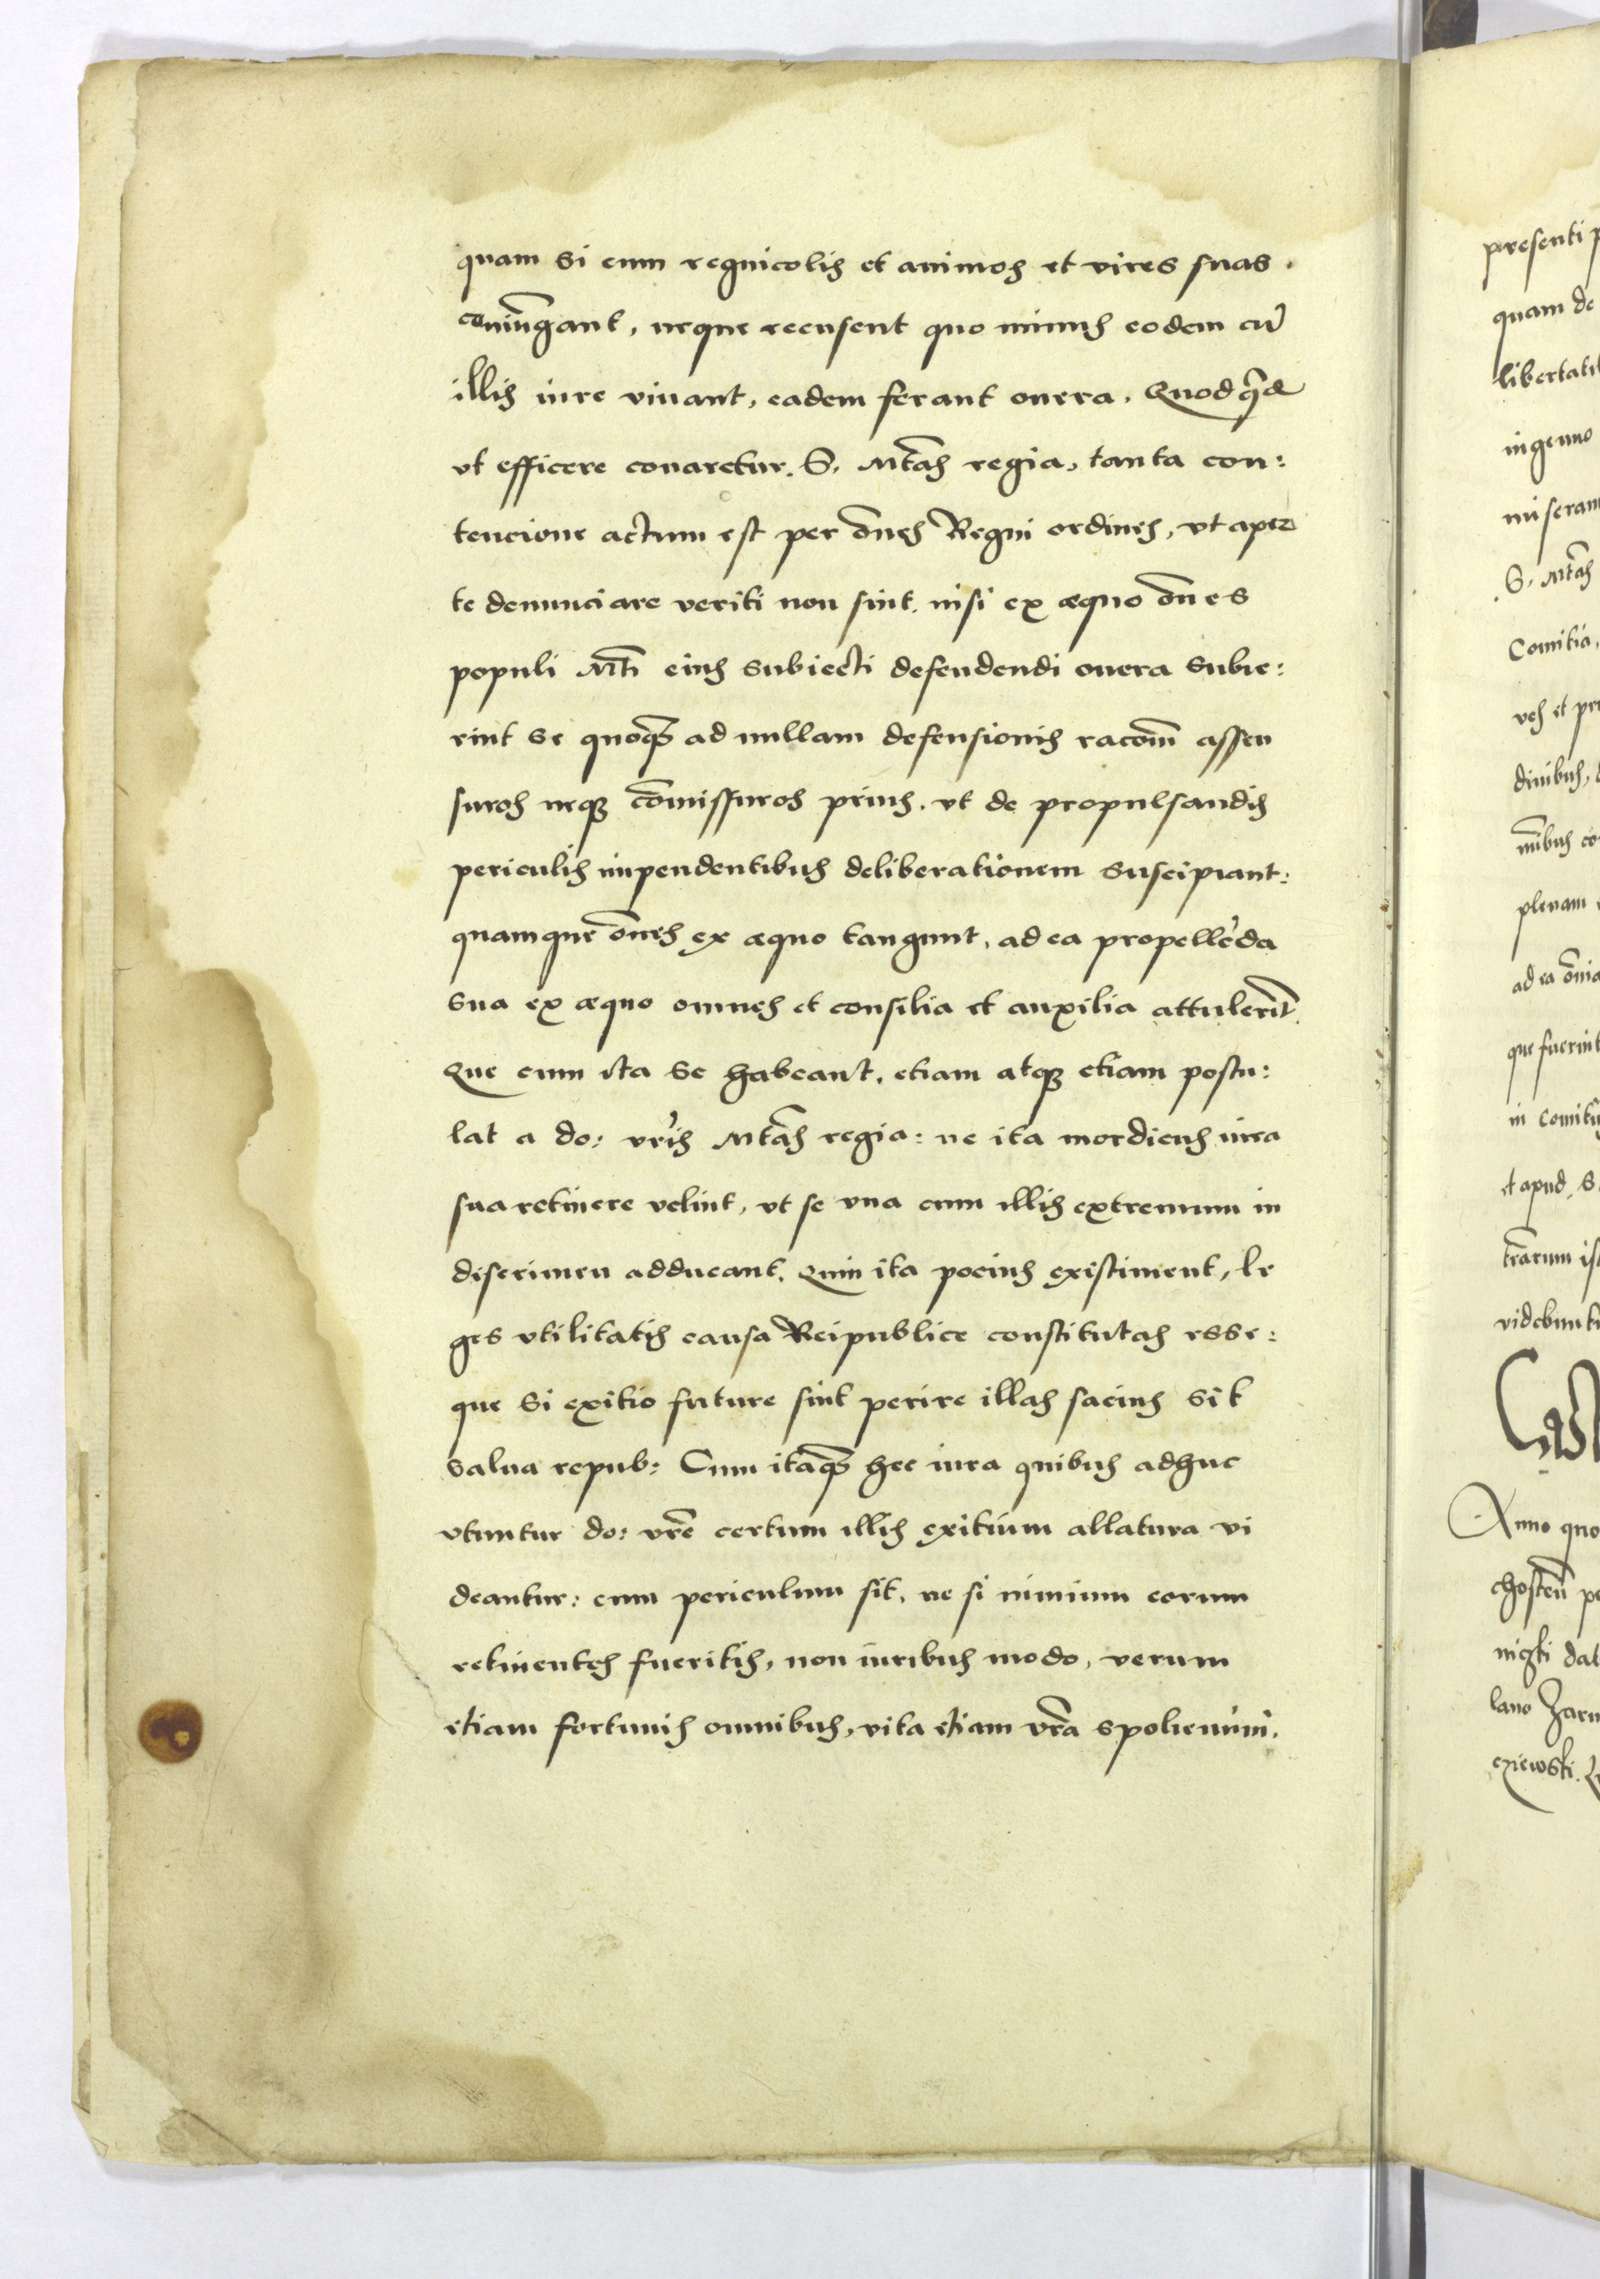 quam si cum regnicolis et animos et vires suas.
coniūgant, neque recusent quo minus eodem cū
illis iure viuant, eadem ferant onera. Quod
vt efficere conaretur. S. Mtãs regia, tanta con:
tencione actum est per õnes Regni ordines, vt aper
te denunciare veriti non sint. nisi ex æquo õnes
populi Mti eius subiecti defendendi onera subie:
rint se quoqȝ ad nullam defensionis racõm assen
suros neqȝ cõmissuros prius. vt de propulsandis
periculis impendentibus deliberationem suscipiant:
quamque õnes ex æquo tangunt, ad ea propellẽda
sua ex æquo omnes et consilia et auxilia attulerĩt
Que cum ita se habeant, etiam atqȝ etiam postu:
lat a do: vr̃is Mtãs regia: ne ita mordicus iura
sua retinere velint, vt se vna cum illis extremum in
discrimen adducant. Quin ita pocius existiment, le
ges vtilitatis causa Reipublice constitutas esse:
que si exitio future sint perire illas sacius sit
salua repub: Cum itaqȝ hec iura quibus adhuc
vtuntur do: vr̃e certum illis exitium allatura vi
deantur: cum periculum sit, ne si nimium eorum
retinentes fueritis, non iuribus modo, verum
etiam fortunis omnibus, vita etiam vr̃a spoliemini.
presenti
quam de
libertati
ingenuo
miseram
S. Mtãs
Comitia,
ves et pr
dinibus,
nibus co
plenam
ad ea õnia
que fuerint
in comiti
et apud. S
tr̃arum is
videbunt
Anno quo
nigski dat
lano Jaru